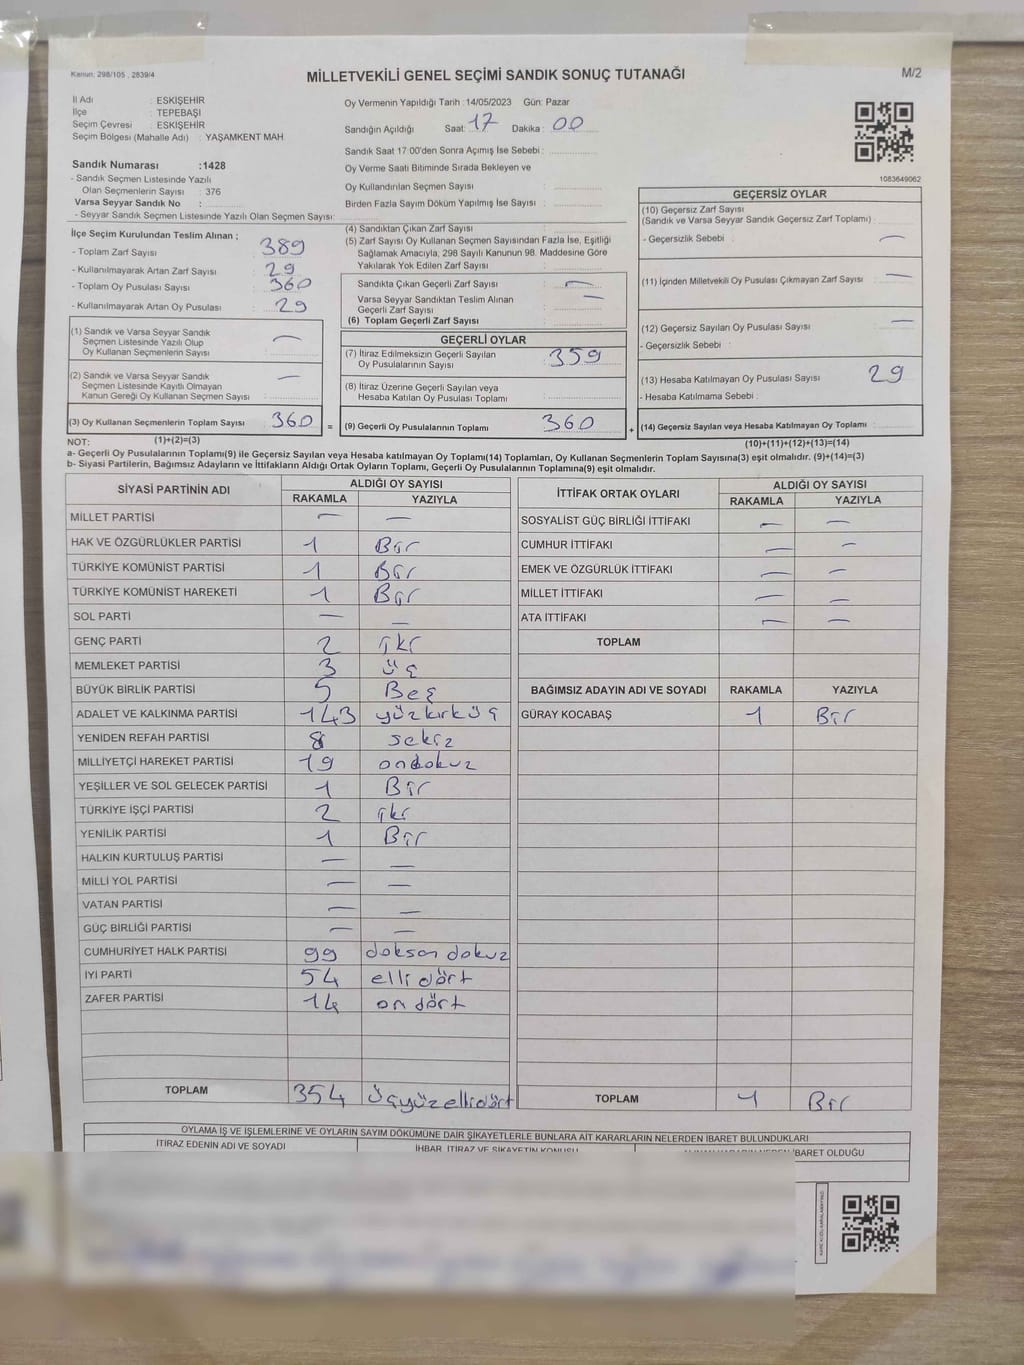 Kanun; 298/105 , 2839/4
MİLLETVEKİLİ GENEL SEÇİMİ SANDIK SONUÇ TUTANAĞI
M/2
İl Adı : ESKİŞEHİR
İlçe : TEPEBAŞI
Seçim Çevresi : ESKİŞEHİR
Seçim Bölgesi (Mahalle Adı) : YAŞAMKENT MAH
Sandık Numarası :1428
- Sandık Seçmen Listesinde Yazılı
Olan Seçmenlerin Sayısı : 376
Varsa Seyyar Sandık No :
- Seyyar Sandık Seçmen Listesinde Yazılı Olan Seçmen Sayısı:
Oy Vermenin Yapıldığı Tarih :14/05/2023 Gün: Pazar
Sandığın Açıldığı Saat: 17 Dakika : 00
Sandık Saat 17:00'den Sonra Açımış İse Sebebi :
Oy Verme Saati Bitiminde Sırada Bekleyen ve
Oy Kullandırılan Seçmen Sayısı :
Birden Fazla Sayım Döküm Yapılmış İse Sayısı :
1083649062
İlçe Seçim Kurulundan Teslim Alınan ;
- Toplam Zarf Sayısı : 389
- Kullanılmayarak Artan Zarf Sayısı : 29
- Toplam Oy Pusulası Sayısı : 360
- Kullanılmayarak Artan Oy Pusulası : 29
(1) Sandık ve Varsa Seyyar Sandık
Seçmen Listesinde Yazılı Olup
Oy Kullanan Seçmenlerin Sayısı : —
(2) Sandık ve Varsa Seyyar Sandık
Seçmen Listesinde Kayıtlı Olmayan
Kanun Gereği Oy Kullanan Seçmen Sayısı : —
(3) Oy Kullanan Seçmenlerin Toplam Sayısı 360 =
(4) Sandıktan Çıkan Zarf Sayısı :
(5) Zarf Sayısı Oy Kullanan Seçmen Sayısından Fazla İse, Eşitliği
Sağlamak Amacıyla, 298 Sayılı Kanunun 98. Maddesine Göre
Yakılarak Yok Edilen Zarf Sayısı :
Sandıkta Çıkan Geçerli Zarf Sayısı : —
Varsa Seyyar Sandıktan Teslim Alınan
Geçerli Zarf Sayısı : —
(6) Toplam Geçerli Zarf Sayısı :
GEÇERLİ OYLAR
(7) İtiraz Edilmeksizin Geçerli Sayılan
Oy Pusulalarının Sayısı : 359
(8) İtiraz Üzerine Geçerli Sayılan veya
Hesaba Katılan Oy Pusulası Toplamı :
(9) Geçerli Oy Pusulalarının Toplamı 360 +
GEÇERSİZ OYLAR
(10) Geçersiz Zarf Sayısı
(Sandık ve Varsa Seyyar Sandık Geçersiz Zarf Toplamı) :
- Geçersizlik Sebebi : —
(11) İçinden Milletvekili Oy Pusulası Çıkmayan Zarf Sayısı : —
(12) Geçersiz Sayılan Oy Pusulası Sayısı : —
- Geçersizlik Sebebi :
(13) Hesaba Katılmayan Oy Pusulası Sayısı : 29
- Hesaba Katılmama Sebebi :
(14) Geçersiz Sayılan veya Hesaba Katılmayan Oy Toplamı :
NOT: (1)+(2)=(3) (10)+(11)+(12)+(13)=(14)
a- Geçerli Oy Pusulalarının Toplamı(9) ile Geçersiz Sayılan veya Hesaba katılmayan Oy Toplamı(14) Toplamları, Oy Kullanan Seçmenlerin Toplam Sayısına(3) eşit olmalıdır. (9)+(14)=(3)
b- Siyasi Partilerin, Bağımsız Adayların ve İttifakların Aldığı Ortak Oyların Toplamı, Geçerli Oy Pusulalarının Toplamına(9) eşit olmalıdır.
SİYASİ PARTİNİN ADI ALDIĞI OY SAYISI
RAKAMLA YAZIYLA
MİLLET PARTİSİ — —
HAK VE ÖZGÜRLÜKLER PARTİSİ 1 Bir
TÜRKİYE KOMÜNİST PARTİSİ 1 Bir
TÜRKİYE KOMÜNİST HAREKETİ 1 Bir
SOL PARTİ — —
GENÇ PARTİ 2 iki
MEMLEKET PARTİSİ 3 üç
BÜYÜK BİRLİK PARTİSİ 5 Beş
ADALET VE KALKINMA PARTİSİ 143 yüzkırküç
YENİDEN REFAH PARTİSİ 8 sekiz
MİLLİYETÇİ HAREKET PARTİSİ 19 ondokuz
YEŞİLLER VE SOL GELECEK PARTİSİ 1 Bir
TÜRKİYE İŞÇİ PARTİSİ 2 iki
YENİLİK PARTİSİ 1 Bir
HALKIN KURTULUŞ PARTİSİ — —
MİLLİ YOL PARTİSİ — —
VATAN PARTİSİ — —
GÜÇ BİRLİĞİ PARTİSİ — —
CUMHURİYET HALK PARTİSİ 99 doksan dokuz
İYİ PARTİ 54 elli dört
ZAFER PARTİSİ 14 on dört
TOPLAM 354 üçyüzellidört
İTTİFAK ORTAK OYLARI ALDIĞI OY SAYISI
RAKAMLA YAZIYLA
SOSYALİST GÜÇ BİRLİĞİ İTTİFAKI — —
CUMHUR İTTİFAKI — —
EMEK VE ÖZGÜRLÜK İTTİFAKI — —
MİLLET İTTİFAKI — —
ATA İTTİFAKI — —
TOPLAM
BAĞIMSIZ ADAYIN ADI VE SOYADI RAKAMLA YAZIYLA
GÜRAY KOCABAŞ 1 Bir
TOPLAM 1 Bir
OYLAMA İŞ VE İŞLEMLERİNE VE OYLARIN SAYIM DÖKÜMÜNE DAİR ŞİKAYETLERLE BUNLARA AİT KARARLARIN NELERDEN İBARET BULUNDUKLARI
İTİRAZ EDENİN ADI VE SOYADI İHBAR, İTİRAZ VE ŞİKAYETİN KONUSU İBARET OLDUĞU